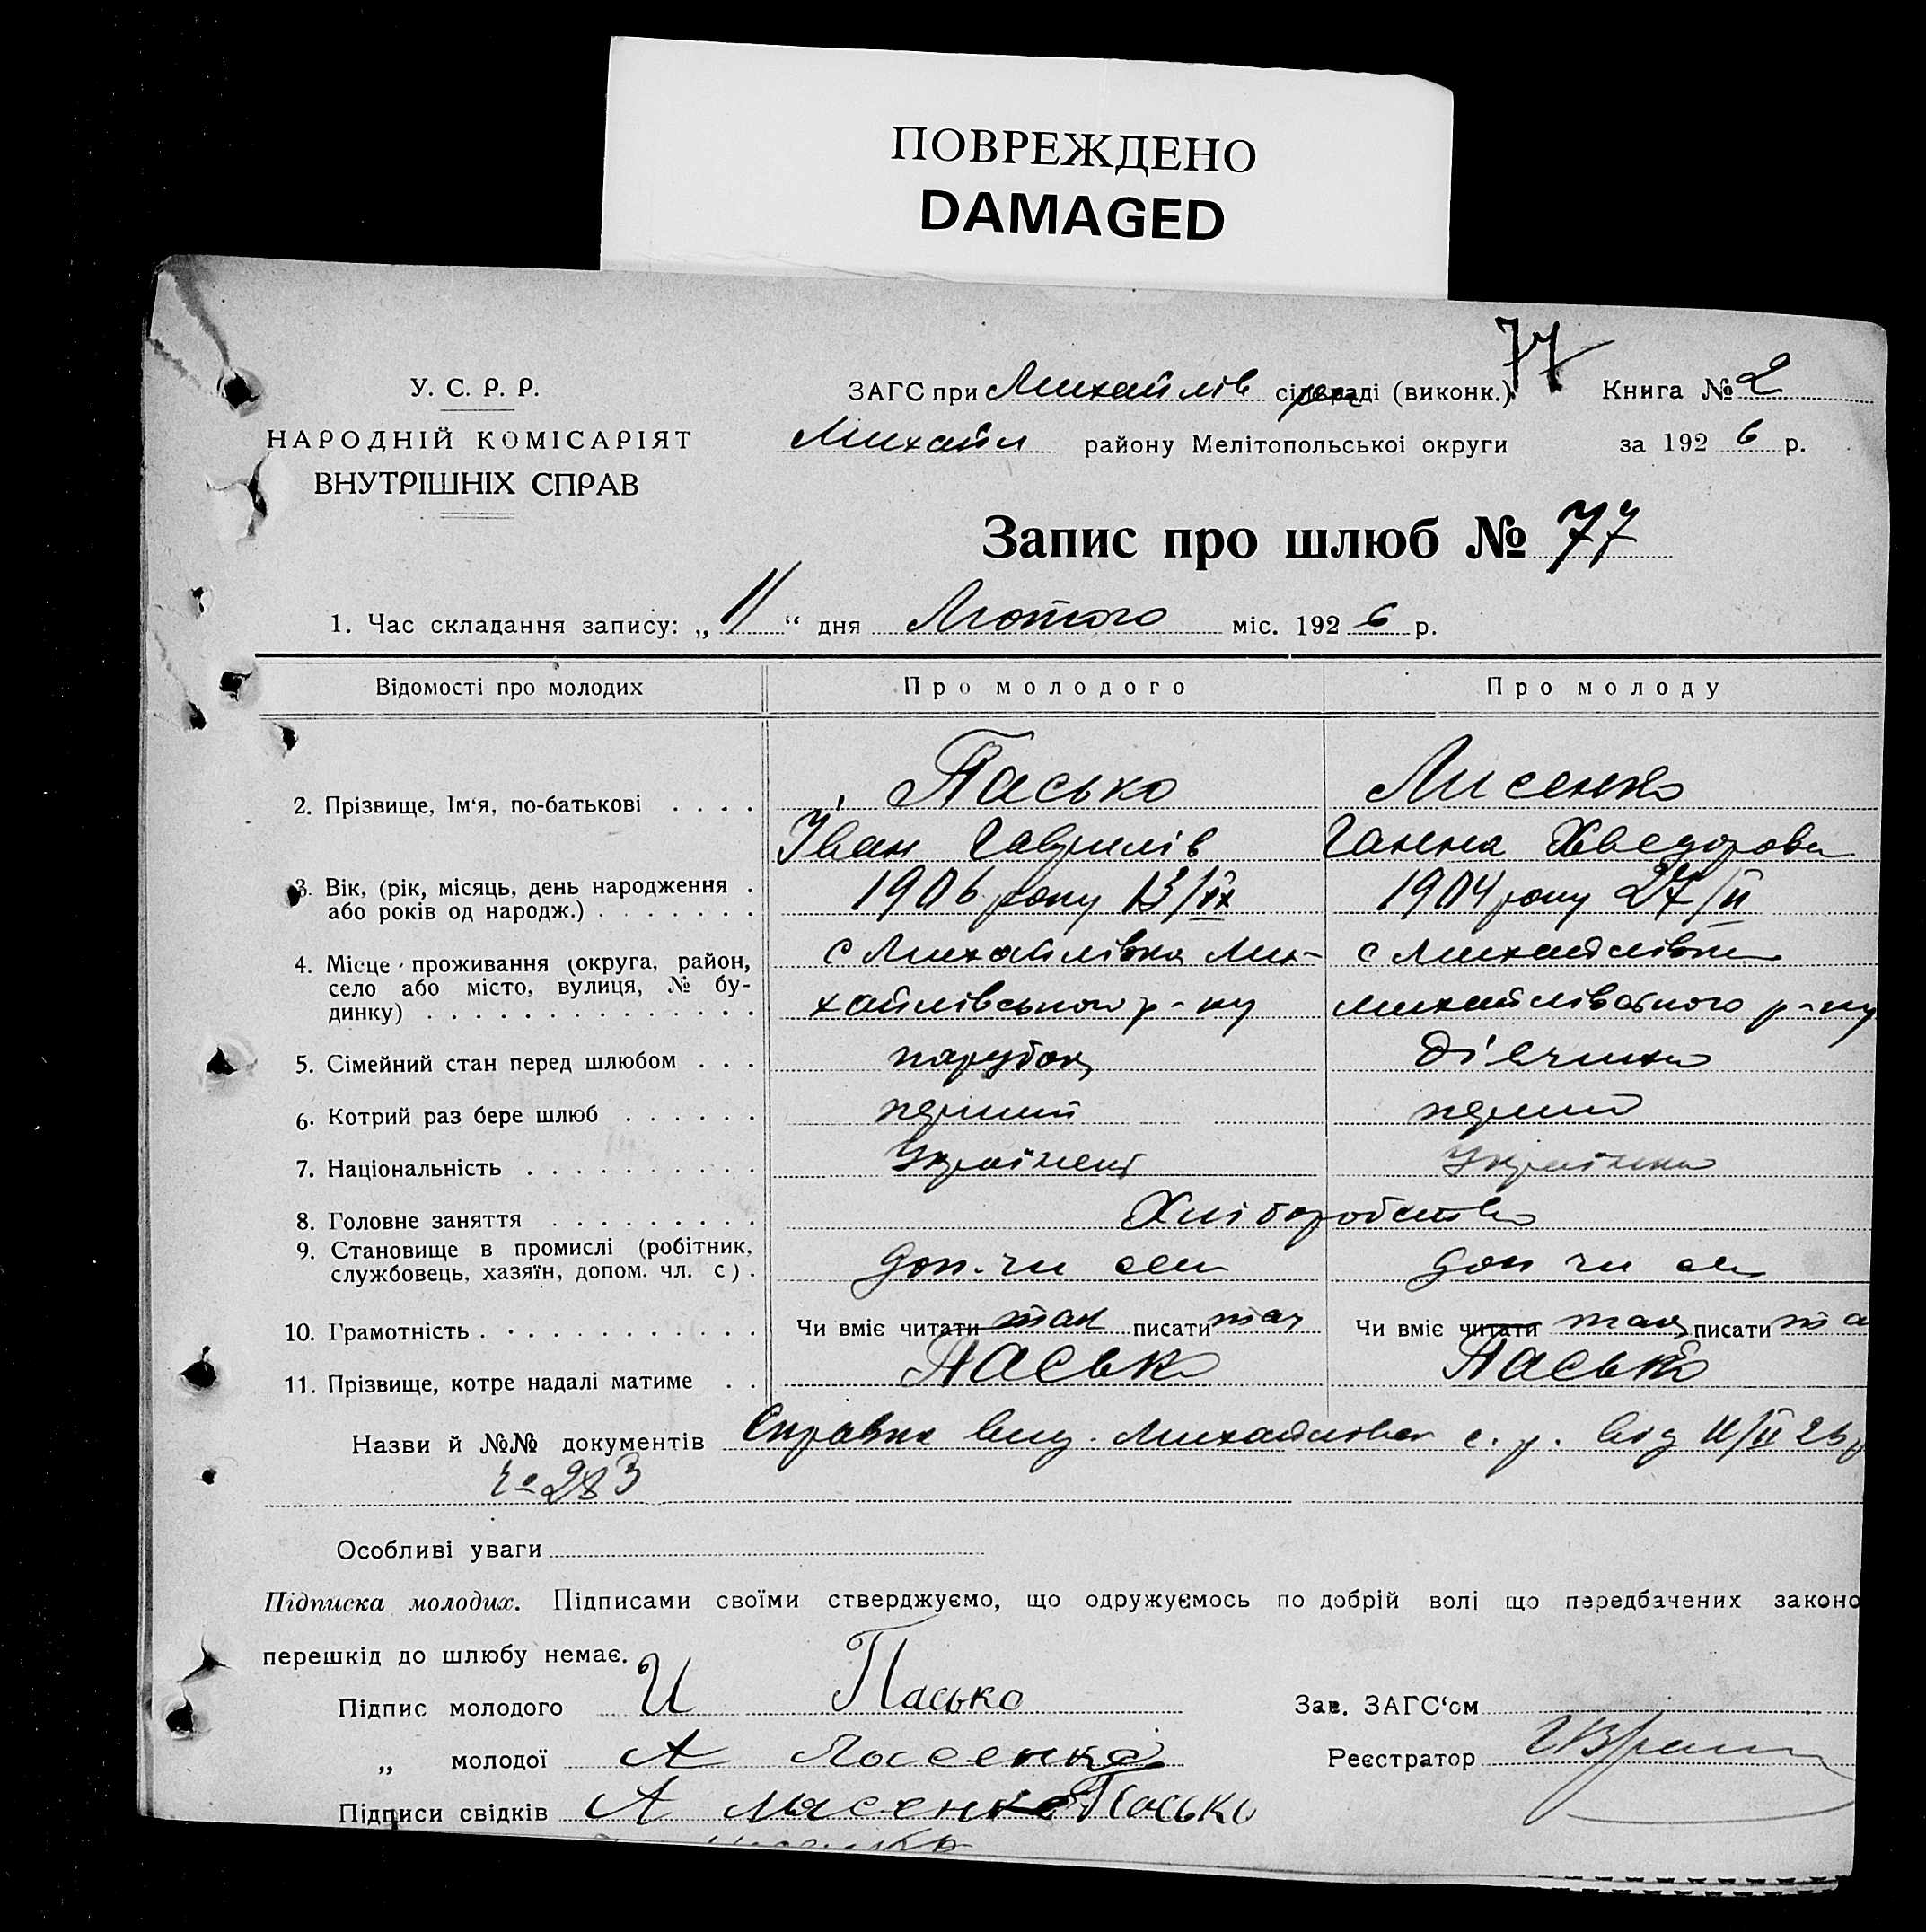 ПОВРЕЖДЕНО
DAMAGED
77
У. С. Р. Р.
НАРОДНІЙ КОМІСАРІЯТ
ВНУТРІШНІХ СПРАВ
ЗАГС при Михайлів сільраді (виконк.) Книга № 2
Михайл району Мелітопольської округи за 1926 р.
Запис про шлюб № 77
1. Час складання запису: „11“ дня Лютого міс. 1926 р.
Відомості про молодих Про молодого Про молоду
2. Прізвище, Ім‘я, по-батькові Пасько Лисенко
Іван Гаврилів Ганна Хведорова
3. Вік, (рік, місяць, день народження 1906 року 13/IX 1904 року 27/II
або років од народж.)
4. Місце проживання (округа, район, с Михайлівка Ми- с Михайлівки
село або місто, вулиця, № бу-
динку) хайлівського р-ну михайлівського р-ну
5. Сімейний стан перед шлюбом парубок дівчина
6. Котрий раз бере шлюб перший перший
7. Національність Українець Українка
8. Головне заняття Хліборобство
9. Становище в промислі (робітник,
службовець, хазяїн, допом. чл. с). доп. чл сем доп чл сем
10. Грамотність Чи вміє читати так писати так Чи вміє читати так писати та
11. Прізвище, котре надалі матиме Пасько Пасько
Назви й №№ документів Справка вид. Михайлівск с. р. від 11/II 26 р
№ 283
Особливі уваги
Підписка молодих. Підписами своїми стверджуємо, що одружуємось по добрій волі що передбачених законо
перешкід до шлюбу немає.
Підпис молодого И Пасько Зав. ЗАГС‘ом
„ молодої А Лосенко Реєстратор
Підписи свідків А Лисенко Пасько